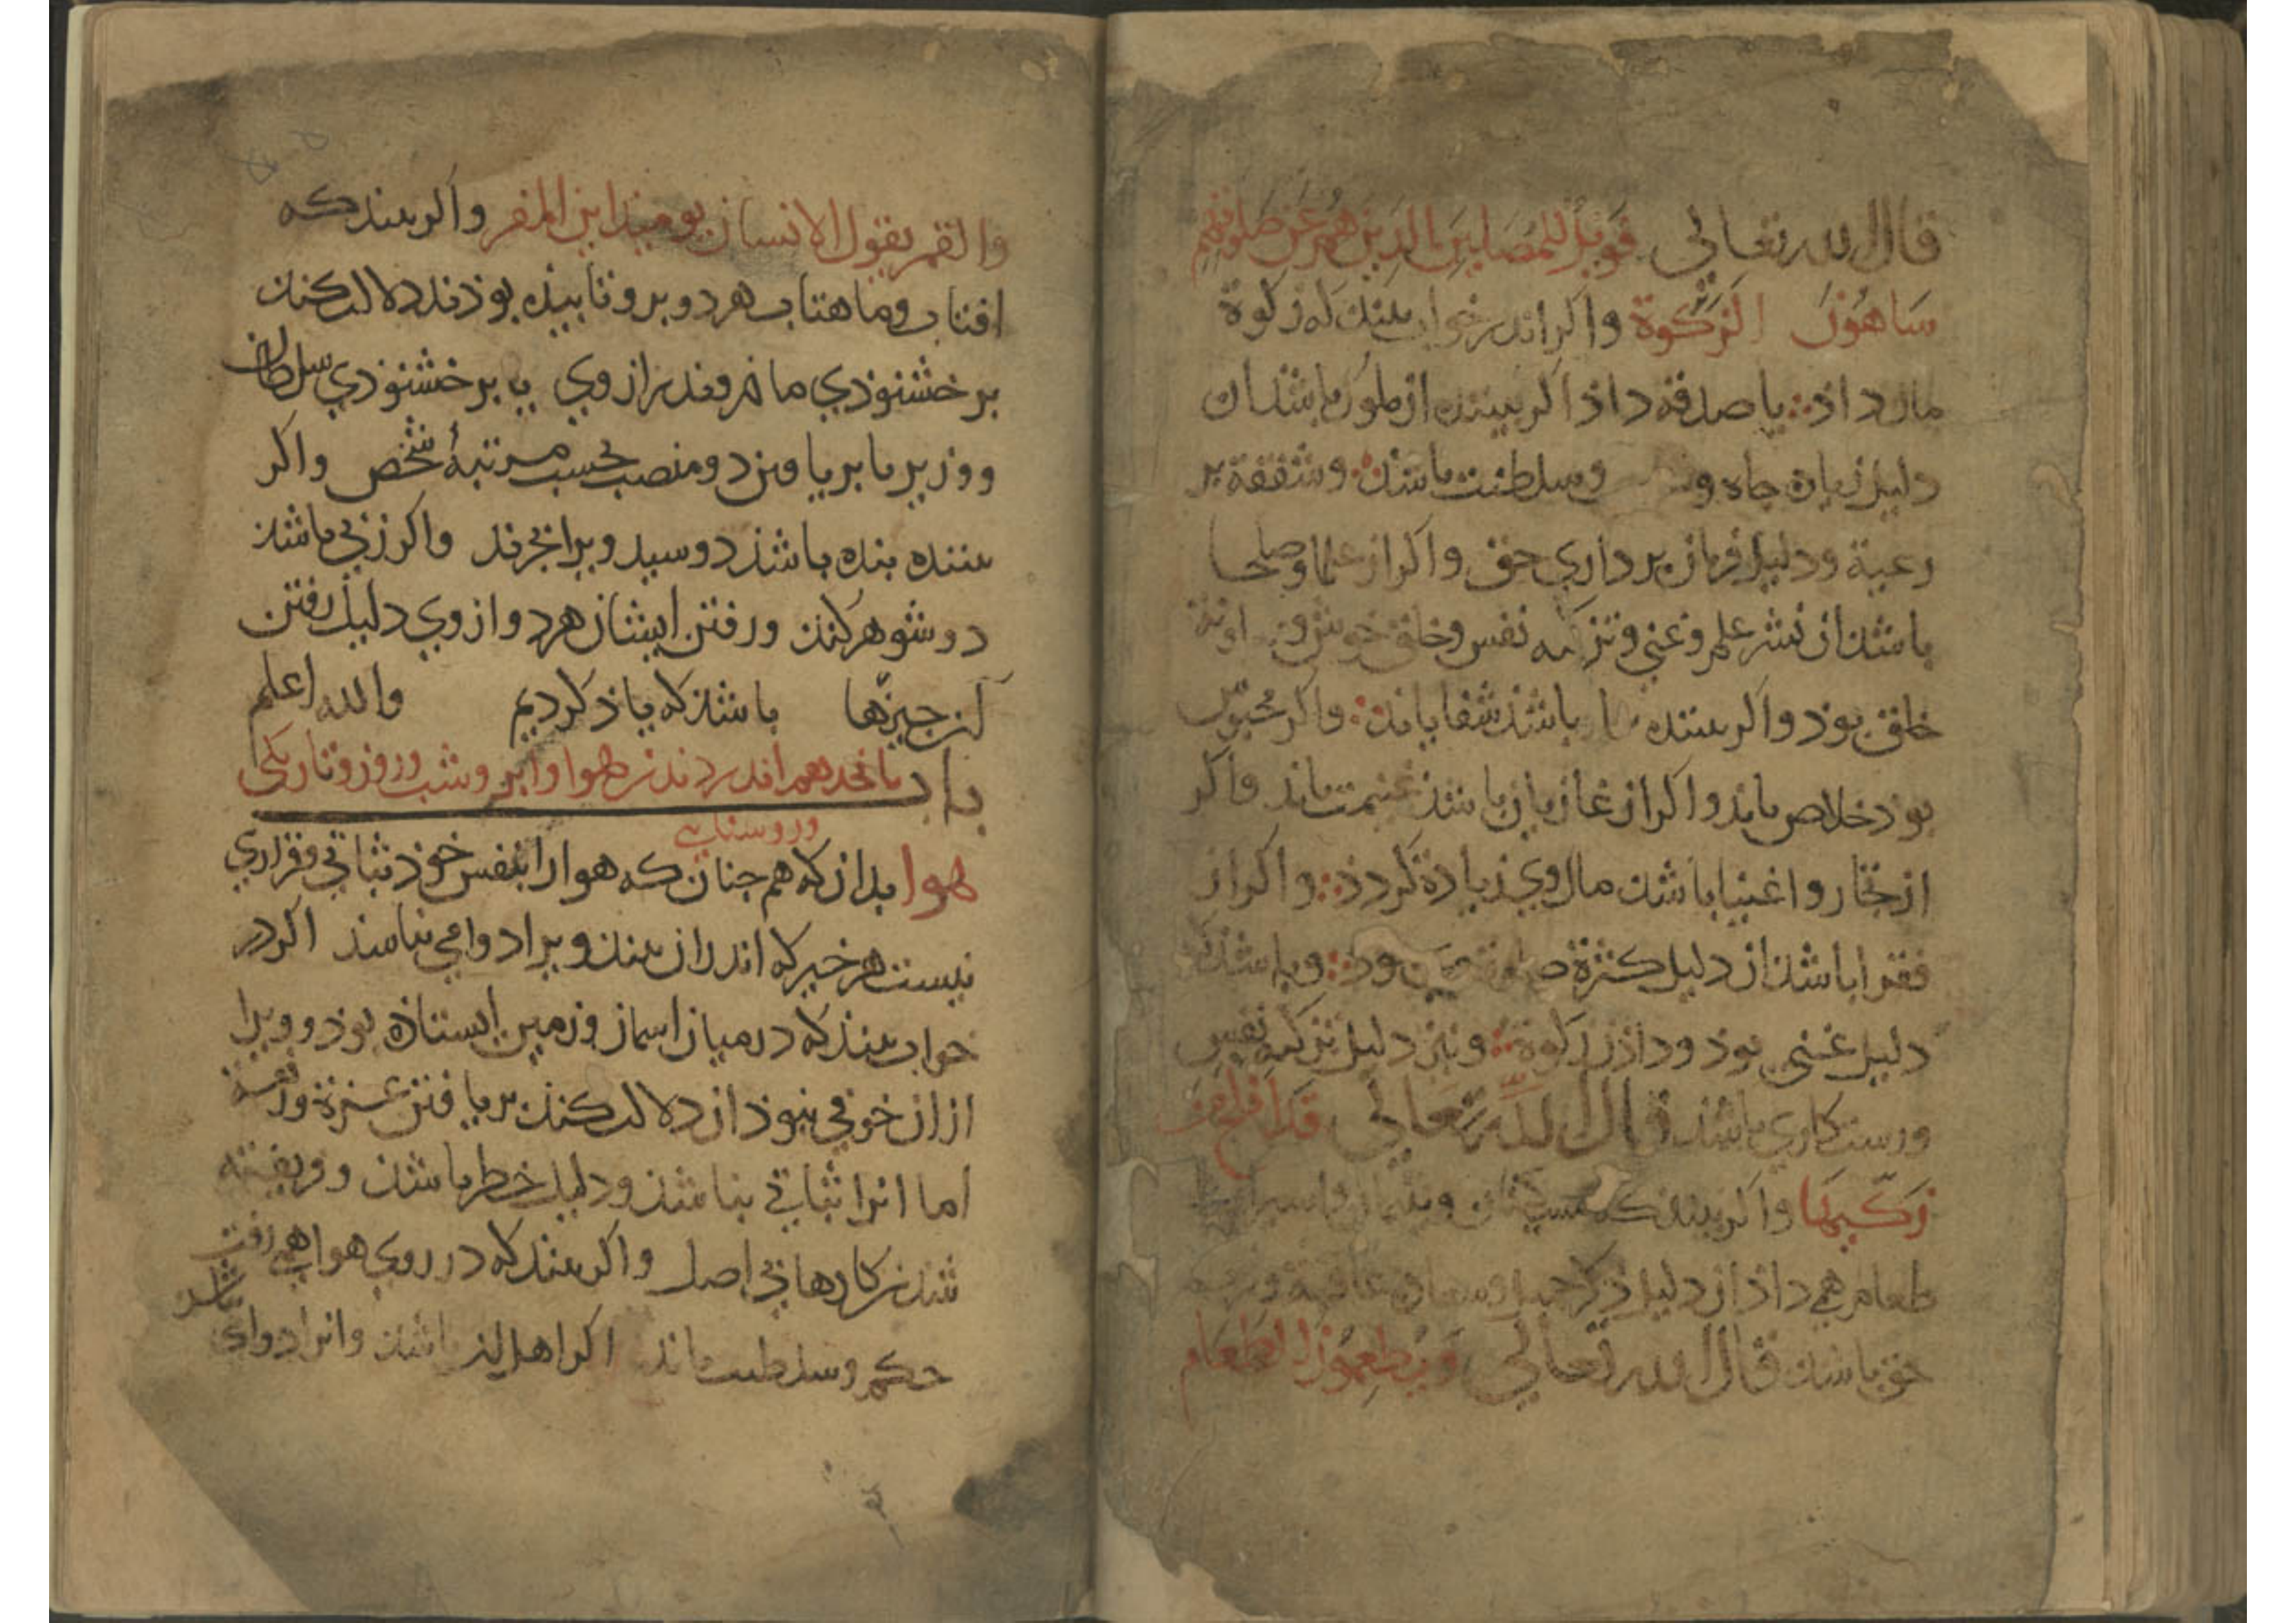 قال الله تعالی فَوَيْلٌ للمُصَلينَ الَّذِينَ هُمْ عَن صَلوتِهِم
سَاهُونَ الزَّكوة واكر اندر خواب بيند كه زكوة
مال داد يا صدقه داد اكر بيننده از ملوك باشد ان
دليل زيادة جاه و وسلطنت باشد وشفقة بر
رعية ودليل فرمان برداري حق واكر از علما وصلحا
باشد ان نشر علم وغني وتزكيه نفس وخلق خوش و
خلق بوذ واكر بيننده باشذ شفا يابد واكر محبوس
بوذ خلاص يابد واكر از غازيان باشذ غنيمت يابد واكر
از تجار واغنيا باشد مال وي زيادة كردد واكر از
فقرا باشد ان دليل كثرة وبا شد كه
دليل غني بوذ وداذن زكوة ونيز دليل تزكيه نفس
ورستكاري باشد قال الله تعالي قد افلح من
زكيها واكر بيند كه
طعام همي داد ان دليل ذكر جميل
حق باشد قال الله تعالي وَيُطعِمُونَ الطعام
والقمر يقول الانسان يوميذ اين المفر واكر بيند كه
افتاب وماهتاب هردو بر وتابيده بوذند دلالت كند
بر خشنوذي ماذر وپدر از وي يا بر خشنوذي سلطان
ووزير يا بر يافتن دو منصب بحسب مرتبهٔ شخص واكر
بيننده بنده باشذ دو سيد ويرا بخرند واكر زني باشد
دو شوهر كند ورفتن ايشان هردو از وي دليل رفتن
آن چيزها باشد كه ياذ كرديم والله اعلم
باب پانزدهم اندر ديدن هوا وابر وشب وروز وتاريكي
وروشنايي
هوا بدان كه هم چنان كه هوا را بنفس خوذ ثباتي وقراري
نيست هر خير كه اندران بيند ويرا دوامي نباشد اكر در
خواب بيند كه در ميان اسمان وزمين ايستاذه بوذ وويرا
ازان خوفي نبوذ ان دلالت كند بر يافتن عزة ورفعت
اما انرا ثباتي نباشذ ودليل خطر باشد وفريفته
شدن بكارهاي بي اصل واكر بيند كه در روي هوا همي رفت
حكم وسلطنت يابد اكر اهل ان باشد وانرا دوامي
نباشد